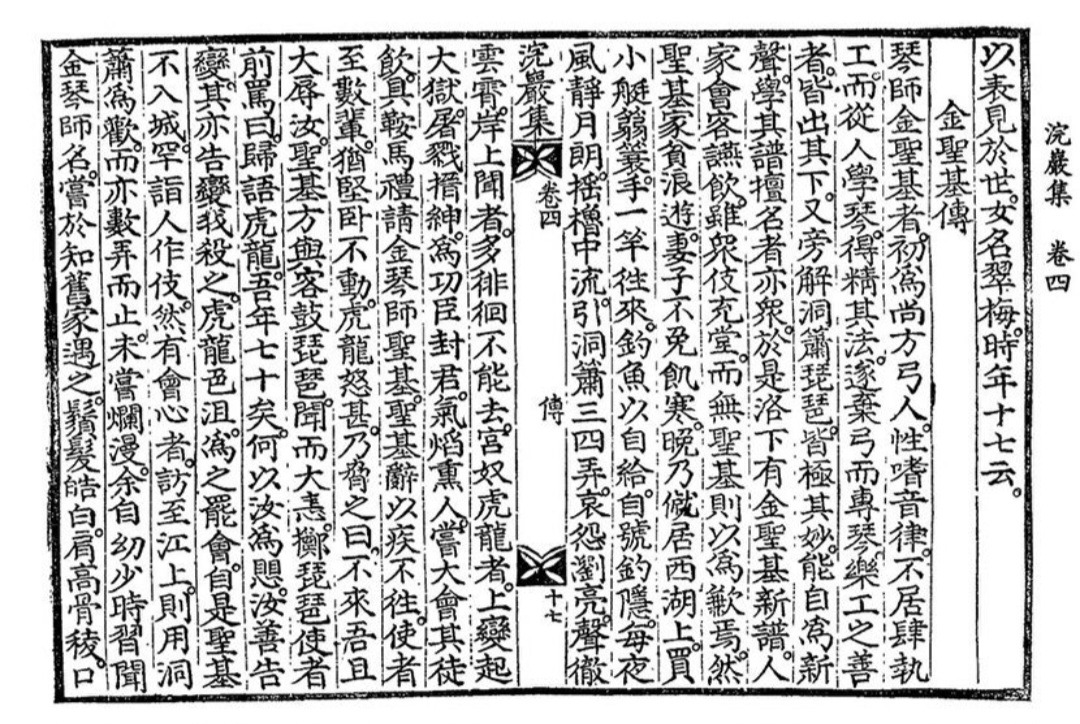 浣巖集　卷四
以表見於世。女名翠梅。時年十七云。
金聖基傳
琴師金聖基者。初爲尚方弓人。性嗜音律。不居肆執
工。而從人學琴。得精其法。遂棄弓而專琴。樂工之善
者。皆出其下。又旁解洞簫琵琶。皆極其妙。能自爲新
聲。學其譜擅名者亦衆。於是洛下有金聖基新譜。人
家會客讌飮。雖衆伎充堂。而無聖基則以爲歉焉。然
聖基家貧浪遊。妻子不免飢寒。晩乃僦居西湖上。買
小艇蒻蓑。手一竿徃來。釣魚以自給。自號釣隱。每夜
風靜月朗。搖櫓中流。引洞簫三四弄。哀怨瀏亮。聲徹
浣巖集　卷四　傳　十七
雲霄。岸上聞者。多徘徊不能去。宮奴虎龍者。上變起
大獄。屠戮搢紳。爲功臣封君。氣焰熏人。嘗大會其徒
飮。具鞍馬禮請金琴師聖基。聖基辭以疾不往。使者
至數輩。猶堅卧不動。虎龍怒甚。乃脅之曰。不來吾且
大辱汝。聖基方與客鼓琵琶。聞而大恚。擲琵琶使者
前罵曰。歸語虎龍。吾年七十矣。何以汝爲惧。汝善告
變。其亦告變我殺之。虎龍色沮。爲之罷會。自是聖基
不入城。罕詣人作伎。然有會心者。訪至江上。則用洞
簫爲歡。而亦數弄而止。未嘗爛漫。余自幼少時習聞
金琴師名。嘗於知舊家遇之。鬚髮皓白。肩高骨稜。口